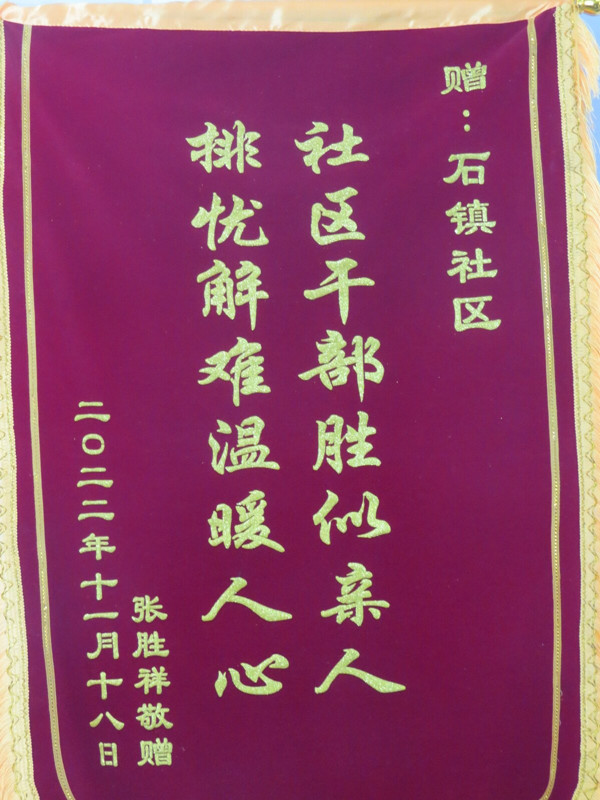 赠：石镇社区
社区干部胜似亲人
排忧解难温暖人心
张胜祥敬赠
二〇二二年十一月十八日